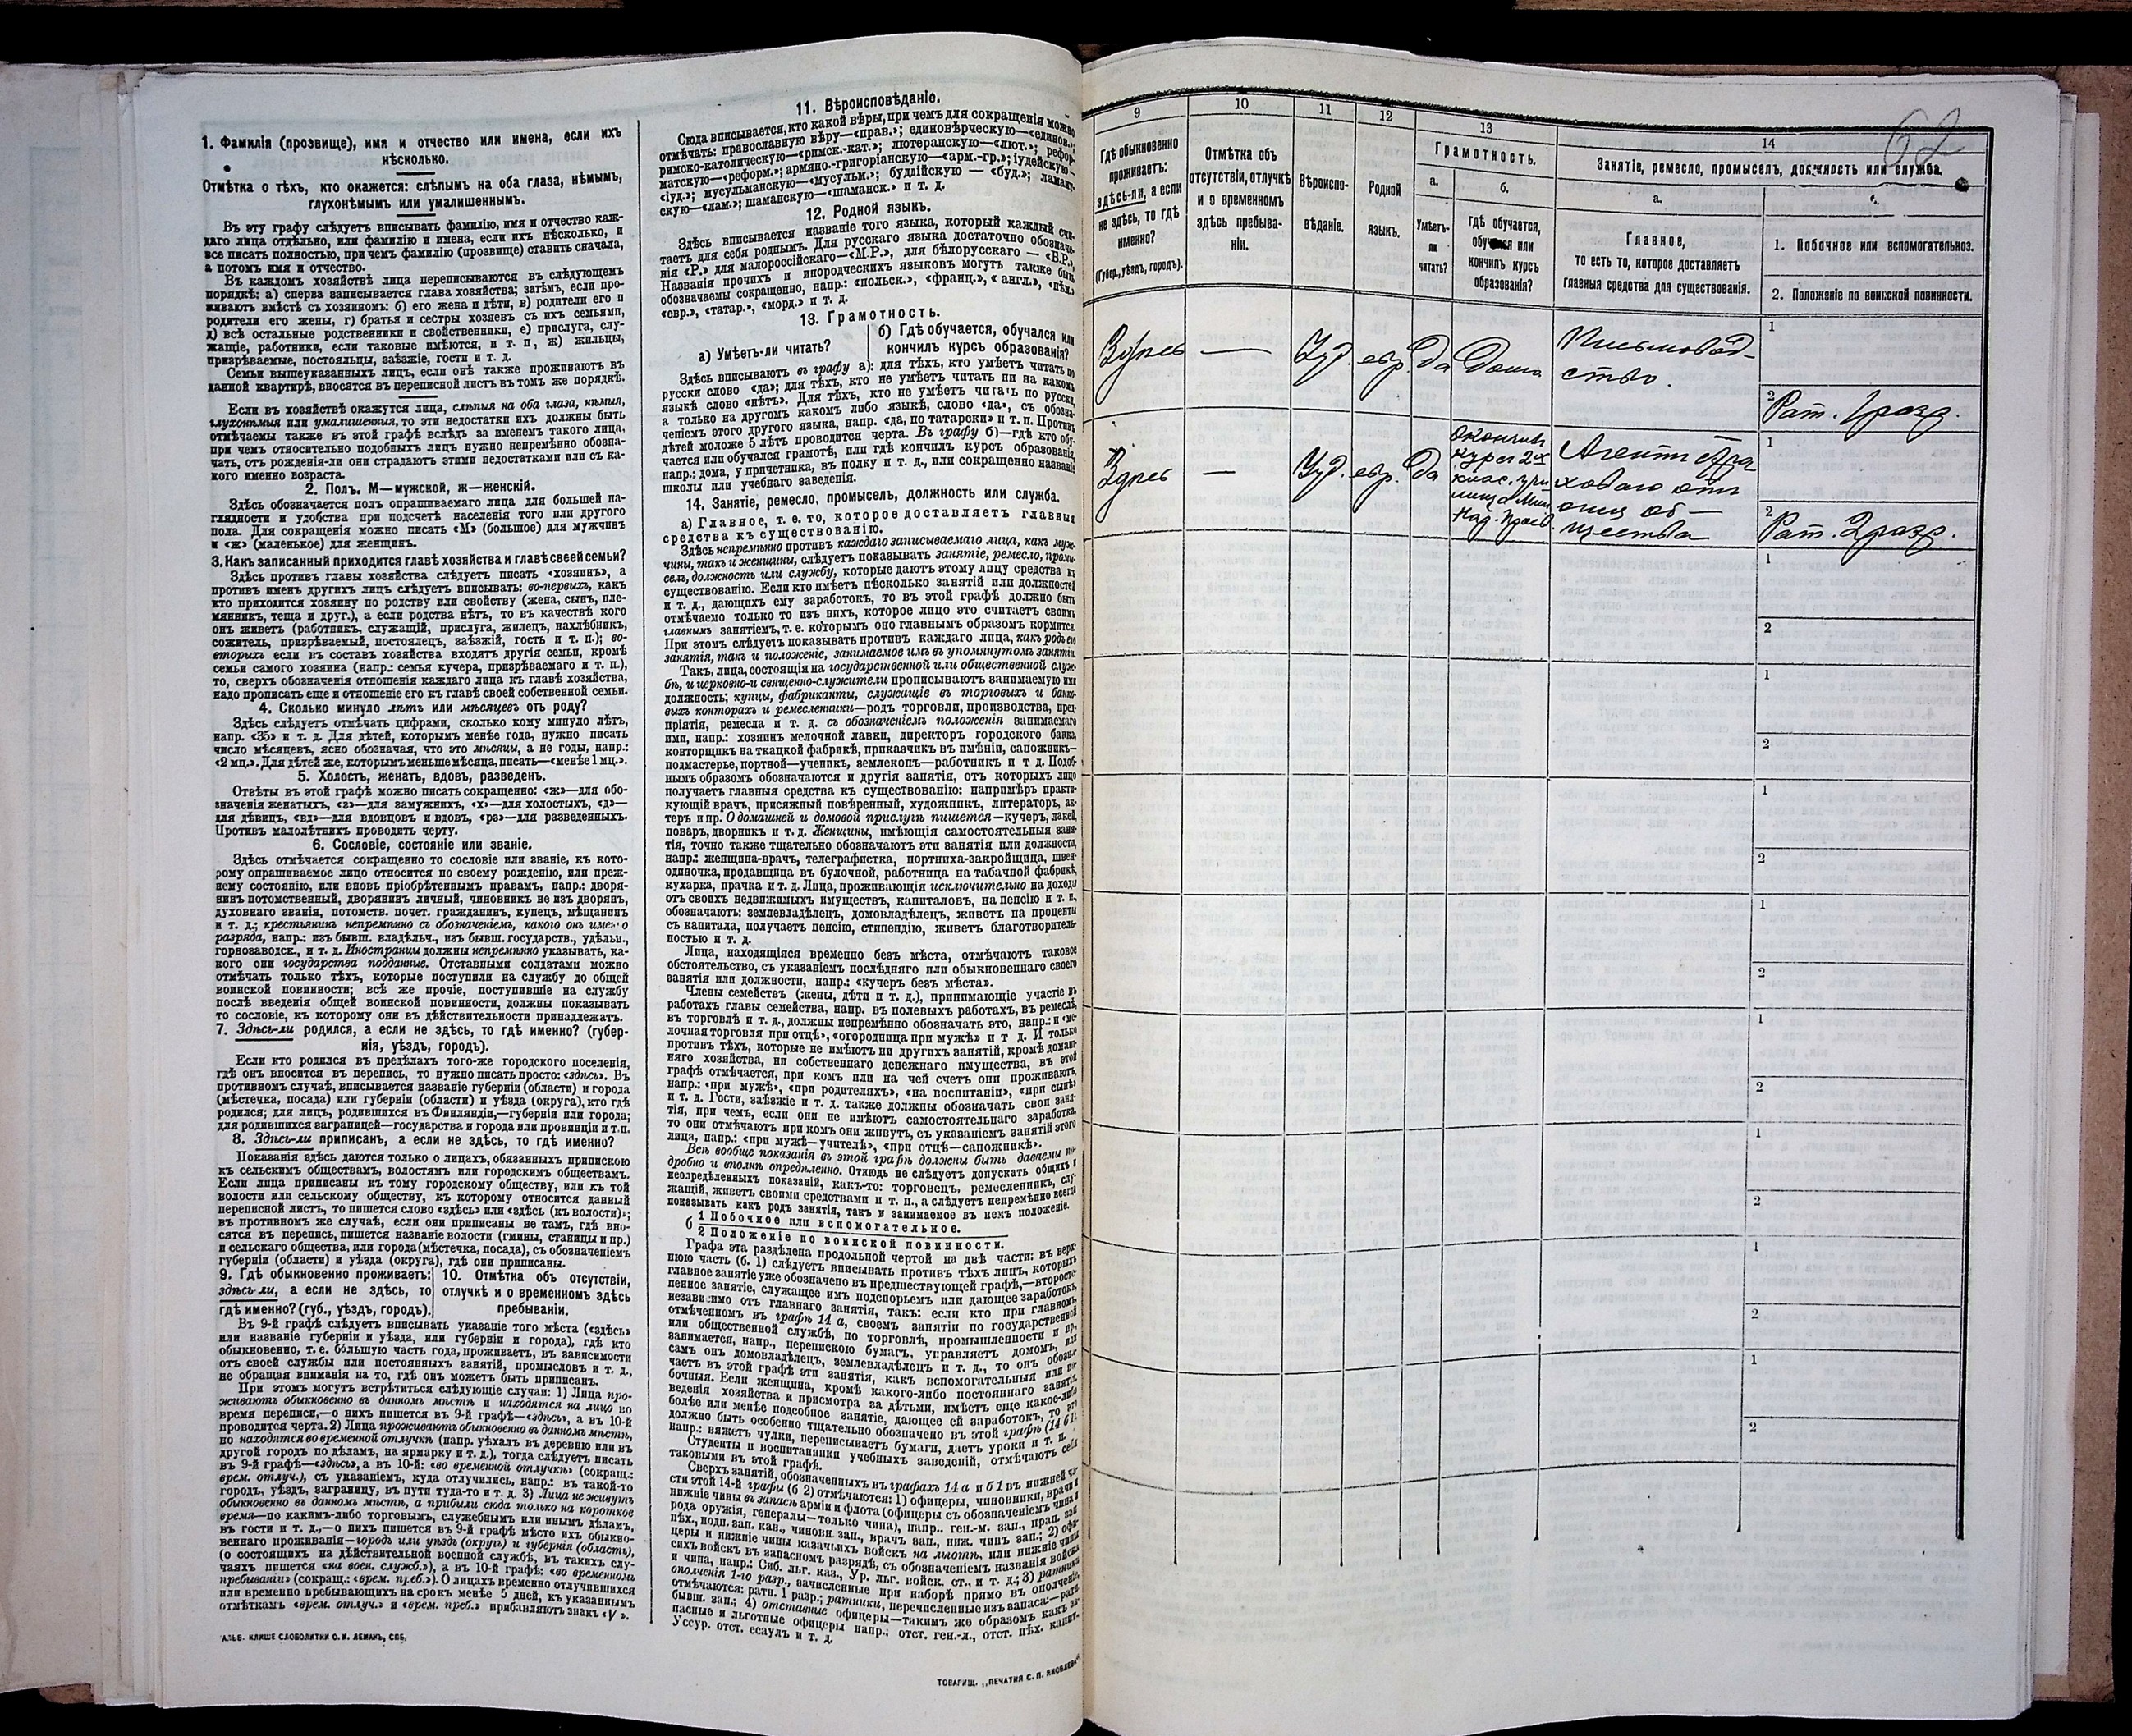 1. Фамилія (прозвище), имя и отчество или имена, если ихъ
нѣсколько.
Отмѣтка о тѣхъ, кто окажется: слѣпымъ на оба глаза, нѣмымъ,
глухонѣмымъ или умалишеннымъ.
Въ эту графу слѣдуетъ вписывать фамилію, имя и отчество каж-
даго лица отдѣльно, или фамилію и имена, если ихъ нѣсколько, и
все писать полностью, при чемъ фамилію (прозвище) ставить сначала,
а потомъ имя и отчество.
Въ каждомъ хозяйствѣ лица переписываются въ слѣдующемъ
порядкѣ: а) сперва записывается глава хозяйства; затѣмъ, если про-
живаютъ вмѣстѣ съ хозяиномъ: б) его жена и дѣти, в) родители его и
родители его жены, г) братья и сестры хозяевъ съ ихъ семьями,
д) всѣ остальные родственники и свойственники, е) прислуга, слу-
жащіе, работники, если таковые имѣются, и т. п, ж) жильцы,
призрѣваемые, постояльцы, заѣзжіе, гости и т. д.
Семьи вышеуказанныхъ лицъ, если онѣ также проживаютъ въ
данной квартирѣ, вносятся въ переписной листъ въ томъ же порядкѣ.
Если въ хозяйствѣ окажутся лица, слѣпыя на оба глаза, нѣмыя,
глухонѣмыя или умалишенныя, то эти недостатки ихъ должны быть
отмѣчаемы также въ этой графѣ вслѣдъ за именемъ такого лица,
при чемъ относительно подобныхъ лицъ нужно непремѣнно обозна-
чать, отъ рожденія-ли они страдаютъ этими недостатками или съ ка-
кого именно возраста.
2. Полъ. М—мужской, ж—женскій.
Здѣсь обозначается полъ опрашиваемаго лица для большей на-
глядности и удобства при подсчетѣ населенія того или другого
пола. Для сокращенія можно писать «М» (большое) для мужчинъ
и «ж» (маленькое) для женщинъ.
3. Какъ записанный приходится главѣ хозяйства и главѣ своей семьи?
Здѣсь противъ главы хозяйства слѣдуетъ писать «хозяинъ», а
противъ именъ другихъ лицъ слѣдуетъ вписывать: во-первыхъ, какъ
кто приходится хозяину по родству или свойству (жена, сынъ, пле-
мянникъ, теща и друг.), а если родства нѣтъ, то въ качествѣ кого
онъ живетъ (работникъ, служащій, прислуга, жилецъ, нахлѣбникъ,
сожитель, призрѣваемый, постоялецъ, заѣзжій, гость и т. п.); во-
вторыхъ если въ составъ хозяйства входятъ другія семьи, кромѣ
семьи самого хозяина (напр.: семья кучера, призрѣваемаго и т. п.),
то, сверхъ обозначенія отношенія каждаго лица къ главѣ хозяйства,
надо прописать еще и отношеніе его къ главѣ своей собственной семьи.
4. Сколько минуло лѣтъ или мѣсяцевъ отъ роду?
Здѣсь слѣдуетъ отмѣчать цифрами, сколько кому минуло лѣтъ,
напр. «35» и т. д. Для дѣтей, которымъ менѣе года, нужно писать
число мѣсяцевъ, ясно обозначая, что это мѣсяцы, а не годы, напр.:
«2 мц.». Для дѣтей же, которымъ меньше мѣсяца, писать—«менѣе 1 мц.».
5. Холостъ, женатъ, вдовъ, разведенъ.
Отвѣты въ этой графѣ можно писать сокращенно: «ж»—для обо-
значенія женатыхъ, «з»—для замужнихъ, «х»—для холостыхъ, «д»—
для дѣвицъ, «вд»—для вдовцовъ и вдовъ, «рз»—для разведенныхъ.
Противъ малолѣтнихъ проводить черту.
6. Сословіе, состояніе или званіе.
Здѣсь отмѣчается сокращенно то сословіе или званіе, къ кото-
рому опрашиваемое лицо относится по своему рожденію, или преж-
нему состоянію, или вновь пріобрѣтеннымъ правамъ, напр.: дворя-
нинъ потомственный, дворянинъ личный, чиновникъ не изъ дворянъ,
духовнаго званія, потомств. почет. гражданинъ, купецъ, мѣщанинъ
и т. д.; крестьянинъ непремѣнно съ обозначеніемъ, какого онъ именно
разряда, напр.: изъ бывш. владѣльч., изъ бывш. государств., удѣльн.,
горнозаводск., и т. д. Иностранцы должны непремѣнно указывать, ка-
кого они государства подданные. Отставными солдатами можно
отмѣчать только тѣхъ, которые поступили на службу до общей
воинской повинности; всѣ же прочіе, поступившіе на службу
послѣ введенія общей воинской повинности, должны показывать
то сословіе, къ которому они въ дѣйствительности принадлежатъ.
7. Здѣсь-ли родился, а если не здѣсь, то гдѣ именно? (губер-
нія, уѣздъ, городъ).
Если кто родился въ предѣлахъ того-же городского поселенія,
гдѣ онъ вносится въ перепись, то нужно писать просто: «здѣсь». Въ
противномъ случаѣ, вписывается названіе губерніи (области) и города
(мѣстечка, посада) или губерніи (области) и уѣзда (округа), кто гдѣ
родился; для лицъ, родившихся въ Финляндіи,—губерніи или города;
для родившихся заграницей—государства и города или провинціи и т.п.
8. Здѣсь-ли приписанъ, а если не здѣсь, то гдѣ именно?
Показанія здѣсь даются только о лицахъ, обязанныхъ припискою
къ сельскимъ обществамъ, волостямъ или городскимъ обществамъ.
Если лица приписаны къ тому городскому обществу, или къ той
волости или сельскому обществу, къ которому относится данный
переписной листъ, то пишется слово «здѣсь» или «здѣсь (къ волости)»;
въ противномъ же случаѣ, если они приписаны не тамъ, гдѣ вно-
сятся въ перепись, пишется названіе волости (гмины, станицы и пр.)
и сельскаго общества, или города (мѣстечка, посада), съ обозначеніемъ
губерніи (области) и уѣзда (округа), гдѣ они приписаны.
9. Гдѣ обыкновенно проживаетъ:
здѣсь-ли, а если не здѣсь, то
гдѣ именно? (губ., уѣздъ, городъ).
10. Отмѣтка объ отсутствіи,
отлучкѣ и о временномъ здѣсь
пребываніи.
Въ 9-й графѣ слѣдуетъ вписывать указаніе того мѣста («здѣсь»
или названіе губерніи и уѣзда, или губерніи и города), гдѣ кто
обыкновенно, т. е. бо́льшую часть года, проживаетъ, въ зависимости
отъ своей службы или постоянныхъ занятій, промысловъ и т. д.,
не обращая вниманія на то, гдѣ онъ можетъ быть приписанъ.
При этомъ могутъ встрѣтиться слѣдующіе случаи: 1) Лица про-
живаютъ обыкновенно въ данномъ мѣстѣ и находятся на лицо во
время переписи,—о нихъ пишется въ 9-й графѣ—«здѣсь», а въ 10-й
проводится черта. 2) Лица проживаютъ обыкновенно въ данномъ мѣстѣ,
но находятся во временной отлучкѣ (напр. уѣхалъ въ деревню или въ
другой городъ по дѣламъ, на ярмарку и т. д.), тогда слѣдуетъ писать
въ 9-й графѣ—«здѣсь», а въ 10-й: «во временной отлучкѣ» (сокращ.:
врем. отлуч.), съ указаніемъ, куда отлучились, напр.: въ такой-то
городъ, уѣздъ, заграницу, въ пути туда-то и т. д. 3) Лица не живутъ
обыкновенно въ данномъ мѣстѣ, а прибыли сюда только на короткое
время—по какимъ-либо торговымъ, служебнымъ или инымъ дѣламъ,
въ гости и т. д.,—о нихъ пишется въ 9-й графѣ мѣсто ихъ обыкно-
веннаго проживанія—городъ или уѣздъ (округъ) и губернія (область),
(о состоящихъ на дѣйствительной военной службѣ, въ такихъ слу-
чаяхъ пишется «на воен. служб.»), а въ 10-й графѣ: «во временномъ
пребываніи» (сокращ.: «врем. преб.»). О лицахъ временно отлучившихся
или временно пребывающихъ на срокъ менѣе 5 дней, къ указаннымъ
отмѣткамъ «врем. отлуч.» и «врем. преб.» прибавляютъ знакъ «V».
КЛИШЕ СЛОВОЛИТНИ О. И. ЛЕМАНЪ, СПБ.
11. Вѣроисповѣданіе.
Сюда вписывается, кто какой вѣры, при чемъ для сокращенія можно
отмѣчать: православную вѣру—«прав.»; единовѣрческую—«единов.»;
римско-католическую—«римск.-кат.»; лютеранскую—«лют.»; рефор-
матскую—«реформ.»; армяно-григоріанскую—«арм.-гр.»; іудейскую—
«іуд.»; мусульманскую—«мусульм.»; буддійскую — «буд.»; ламаит-
скую—«лам.»; шаманскую—«шаманск.» и т. д.
12. Родной языкъ.
Здѣсь вписывается названіе того языка, который каждый счи-
таетъ для себя роднымъ. Для русскаго языка достаточно обозначе-
нія «Р.» для малороссійскаго—«М.Р.», для бѣлорусскаго — «Б.Р.»,
Названія прочихъ и инородческихъ языковъ могутъ также быть
обозначаемы сокращенно, напр.: «польск.», «франц.», «англ.», «нѣм.»
«евр.», «татар.», «морд.» и т. д.
13. Грамотность.
а) Умѣетъ-ли читать?
б) Гдѣ обучается, обучался или
кончилъ курсъ образованія?
Здѣсь вписываютъ въ графу а): для тѣхъ, кто умѣетъ читать по
русски слово «да»; для тѣхъ, кто не умѣетъ читать ни на какомъ
языкѣ слово «нѣтъ». Для тѣхъ, кто не умѣетъ читать по русски,
а только на другомъ какомъ либо языкѣ, слово «да», съ обозна-
ченіемъ этого другого языка, напр. «да, по татарски» и т. п. Противъ
дѣтей моложе 5 лѣтъ проводится черта. Въ графу б)—гдѣ кто обу-
чается или обучался грамотѣ, или гдѣ кончилъ курсъ образованія,
напр.: дома, у причетника, въ полку и т. д., или сокращенно названіе
школы или учебнаго заведенія.
14. Занятіе, ремесло, промыселъ, должность или служба.
а) Главное, т. е. то, которое доставляетъ главныя
средства къ существованію.
Здѣсь непремѣнно противъ каждаго записываемаго лица, какъ муж-
чины, такъ и женщины, слѣдуетъ показывать занятіе, ремесло, промы-
селъ, должность или службу, которые даютъ этому лицу средства къ
существованію. Если кто имѣетъ нѣсколько занятій или должностей
и т. д., дающихъ ему заработокъ, то въ этой графѣ должно быть
отмѣчаемо только то изъ нихъ, которое лицо это считаетъ своимъ
главнымъ занятіемъ, т. е. которымъ оно главнымъ образомъ кормится.
При этомъ слѣдуетъ показывать противъ каждаго лица, какъ родъ его
занятія, такъ и положеніе, занимаемое имъ въ упомянутомъ занятіи.
Такъ, лица, состоящія на государственной или общественной служ-
бѣ, и церковно-и священно-служители прописываютъ занимаемую ими
должность; купцы, фабриканты, служащіе въ торговыхъ и банко-
выхъ конторахъ и ремесленники—родъ торговли, производства, пред-
пріятія, ремесла и т. д. съ обозначеніемъ положенія занимаемаго
ими, напр.: хозяинъ мелочной лавки, директоръ городского банка,
конторщикъ на ткацкой фабрикѣ, приказчикъ въ имѣніи, сапожникъ—
подмастерье, портной—ученикъ, землекопъ—работникъ и т д. Подоб-
нымъ образомъ обозначаются и другія занятія, отъ которыхъ лицо
получаетъ главныя средства къ существованію: напримѣръ практи-
кующій врачъ, присяжный повѣренный, художникъ, литераторъ, ак-
теръ и пр. О домашней и домовой прислугѣ пишется—кучеръ, лакей,
поваръ, дворникъ и т. д. Женщины, имѣющія самостоятельныя заня-
тія, точно также тщательно обозначаютъ эти занятія или должности,
напр.: женщина-врачъ, телеграфистка, портниха-закройщица, швея-
одиночка, продавщица въ булочной, работница на табачной фабрикѣ,
кухарка, прачка и т. д. Лица, проживающія исключительно на доходы
отъ своихъ недвижимыхъ имуществъ, капиталовъ, на пенсію и т. п.,
обозначаютъ: землевладѣлецъ, домовладѣлецъ, живетъ на проценты
съ капитала, получаетъ пенсію, стипендію, живетъ благотворитель-
ностью и т. д.
Лица, находящіяся временно безъ мѣста, отмѣчаютъ таковое
обстоятельство, съ указаніемъ послѣдняго или обыкновеннаго своего
занятія или должности, напр.: «кучеръ безъ мѣста».
Члены семействъ (жены, дѣти и т. д.), принимающіе участіе въ
работахъ главы семейства, напр. въ полевыхъ работахъ, въ ремеслѣ,
въ торговлѣ и т. д., должны непремѣнно обозначать это, напр.: и «ме-
лочная торговля при отцѣ», «огородница при мужѣ» и т д. И только
противъ тѣхъ, которые не имѣютъ ни другихъ занятій, кромѣ домаш-
няго хозяйства, ни собственнаго денежнаго имущества, въ этой
графѣ отмѣчается, при комъ или на чей счетъ они проживаютъ,
напр.: «при мужѣ», «при родителяхъ», «на воспитаніи», «при сынѣ»
и т. д. Гости, заѣзжіе и т. д. также должны обозначать свои заня-
тія, при чемъ, если они не имѣютъ самостоятельнаго заработка,
то они отмѣчаютъ при комъ они живутъ, съ указаніемъ занятій этого
лица, напр.: «при мужѣ—учителѣ», «при отцѣ—сапожникѣ».
Всѣ вообще показанія въ этой графѣ должны быть даваемы по-
дробно и вполнѣ опредѣленно. Отнюдь не слѣдуетъ допускать общихъ и
неопредѣленныхъ показаній, какъ-то: торговецъ, ремесленникъ, слу-
жащій, живетъ своими средствами и т. п., а слѣдуетъ непремѣнно всегда
показывать какъ родъ занятія, такъ и занимаемое въ немъ положеніе.
б 1 Побочное или вспомогательное.
2 Положеніе по воинской повинности.
Графа эта раздѣлена продольной чертой на двѣ части: въ верх-
нюю часть (б. 1) слѣдуетъ вписывать противъ тѣхъ лицъ, которыхъ
главное занятіе уже обозначено въ предшествующей графѣ,—второсте-
пенное занятіе, служащее имъ подспорьемъ или дающее заработокъ,
независимо отъ главнаго занятія, такъ: если кто при главномъ,
отмѣченномъ въ графѣ 14 а, своемъ занятіи по государственной
или общественной службѣ, по торговлѣ, промышленности и пр.,
занимается, напр., перепискою бумагъ, управляетъ домомъ, или
самъ онъ домовладѣлецъ, землевладѣлецъ и т. д., то онъ обозна-
чаетъ въ этой графѣ эти занятія, какъ вспомогательныя или по-
бочныя. Если женщина, кромѣ какого-либо постояннаго занятія,
веденія хозяйства и присмотра за дѣтьми, имѣетъ еще какое-либо
болѣе или менѣе подсобное занятіе, дающее ей заработокъ, то это
должно быть особенно тщательно обозначено въ этой графѣ (14 б 1),
напр.: вяжетъ чулки, переписываетъ бумаги, даетъ уроки и т. п.
Студенты и воспитанники учебныхъ заведеній, отмѣчаютъ себя
таковыми въ этой графѣ.
Сверхъ занятій, обозначенныхъ въ графахъ 14 а и б 1 въ нижней ча-
сти этой 14-й графы (б 2) отмѣчаются: 1) офицеры, чиновники, врачи и
нижніе чины въ запасѣ арміи и флота (офицеры съ обозначеніемъ чина и
рода оружія, генералы—только чина), напр.. ген.-м. зап., прап. зап.
пѣх., подп. зап. кав., чиновн. зап., врачъ зап., ниж. чинъ зап.; 2) офи-
церы и нижніе чины казачьихъ войскъ на льготѣ, или нижніе чины
сихъ войскъ въ запасномъ разрядѣ, съ обозначеніемъ названія войска
и чина, напр.: Сиб. льг. каз., Ур. льг. войск. ст., и т. д.; 3) ратники
ополченія 1-го разр., зачисленные при наборѣ прямо въ ополченіе,
отмѣчаются: ратн. 1 разр.; ратники, перечисленные изъ запаса:—ратн.
бывш. зап.; 4) отставные офицеры—такимъ же образомъ какъ за-
пасные и льготные офицеры напр.: отст. ген.-л., отст. пѣх. капит.
Уссур. отст. есаулъ и т. д.
ТОВАРИЩ. „ПЕЧАТНЯ С. П. ЯКОВЛЕВА“
62
9
10
11
12
13
14
Гдѣ обыкновенно
проживаетъ:
здѣсь-ли, а если
не здѣсь, то гдѣ
именно?
(Губер., уѣздъ, городъ).
Отмѣтка объ
отсутствіи, отлучкѣ
и о временномъ
здѣсь пребыва-
ніи.
Вѣроиспо-
вѣданіе.
Родной
языкъ.
Грамотность.
а.
Умѣетъ-
ли
читать?
б.
Гдѣ обучается,
обучался или
кончилъ курсъ
образованія?
Занятіе, ремесло, промыселъ, должность или служба.
а.
Главное,
то есть то, которое доставляетъ
главныя средства для существованія.
1. Побочное или вспомогательное.
2. Положеніе по воинской повинности.
Здѣсь — Іуд. евр. да Дома
Письмовод-
ство.
1
2 Рат. 1 разр.
Здѣсь — Іуд. евр. да
окончилъ
курсъ 2х
клас. учи-
лища Мин.
Нар. Просв.
Агентъ стра
ховаго отъ
огня об—
щества
1
2 Рат. 2 разр.
1
2
1
2
1
2
1
2
1
2
1
2
1
2
1
2